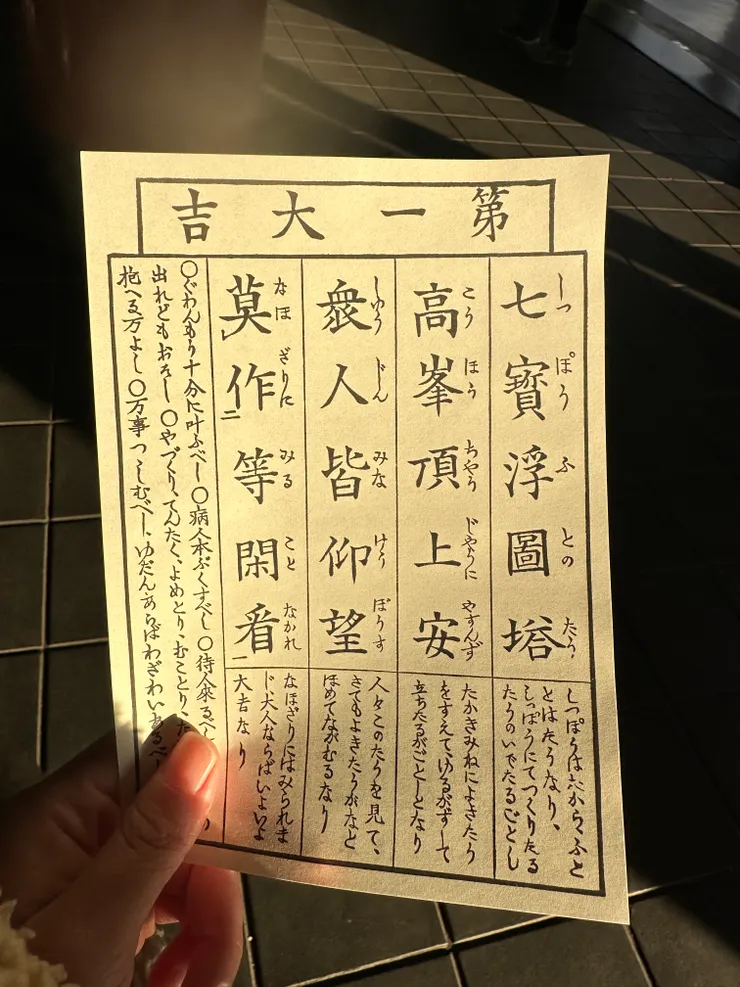 第一大吉
七寶浮圖塔
しっぽうふとのたう
しっぽうはたから、ふと
とはたうなり、
しっぽうにてつくりたる
たうのいでたるごとし
高峯頂上安
こうほうちやうじやうにやすんず
たかきみねによきたう
をすえて、ゆるがずして
立ちたるがごとしとなり
衆人皆仰望
しゆうじんみなけうぼうす
人々このたうを見て、
さてもよきたうかなと
ほめてながむるなり
莫レ作二等閑看一
なほざりにみることなかれ
なほざりにはみられま
じ、大人ならばいよいよ
大吉なり
〇ぐわんもう十分に叶ふべし〇病人本ぶくすべし〇待人來るべし
出れどもおそし〇やづくり、てんたく、よめとり、むことり、
抱へる万よし〇万事つゝしむべし、ゆだんあらばわざわいあるべし